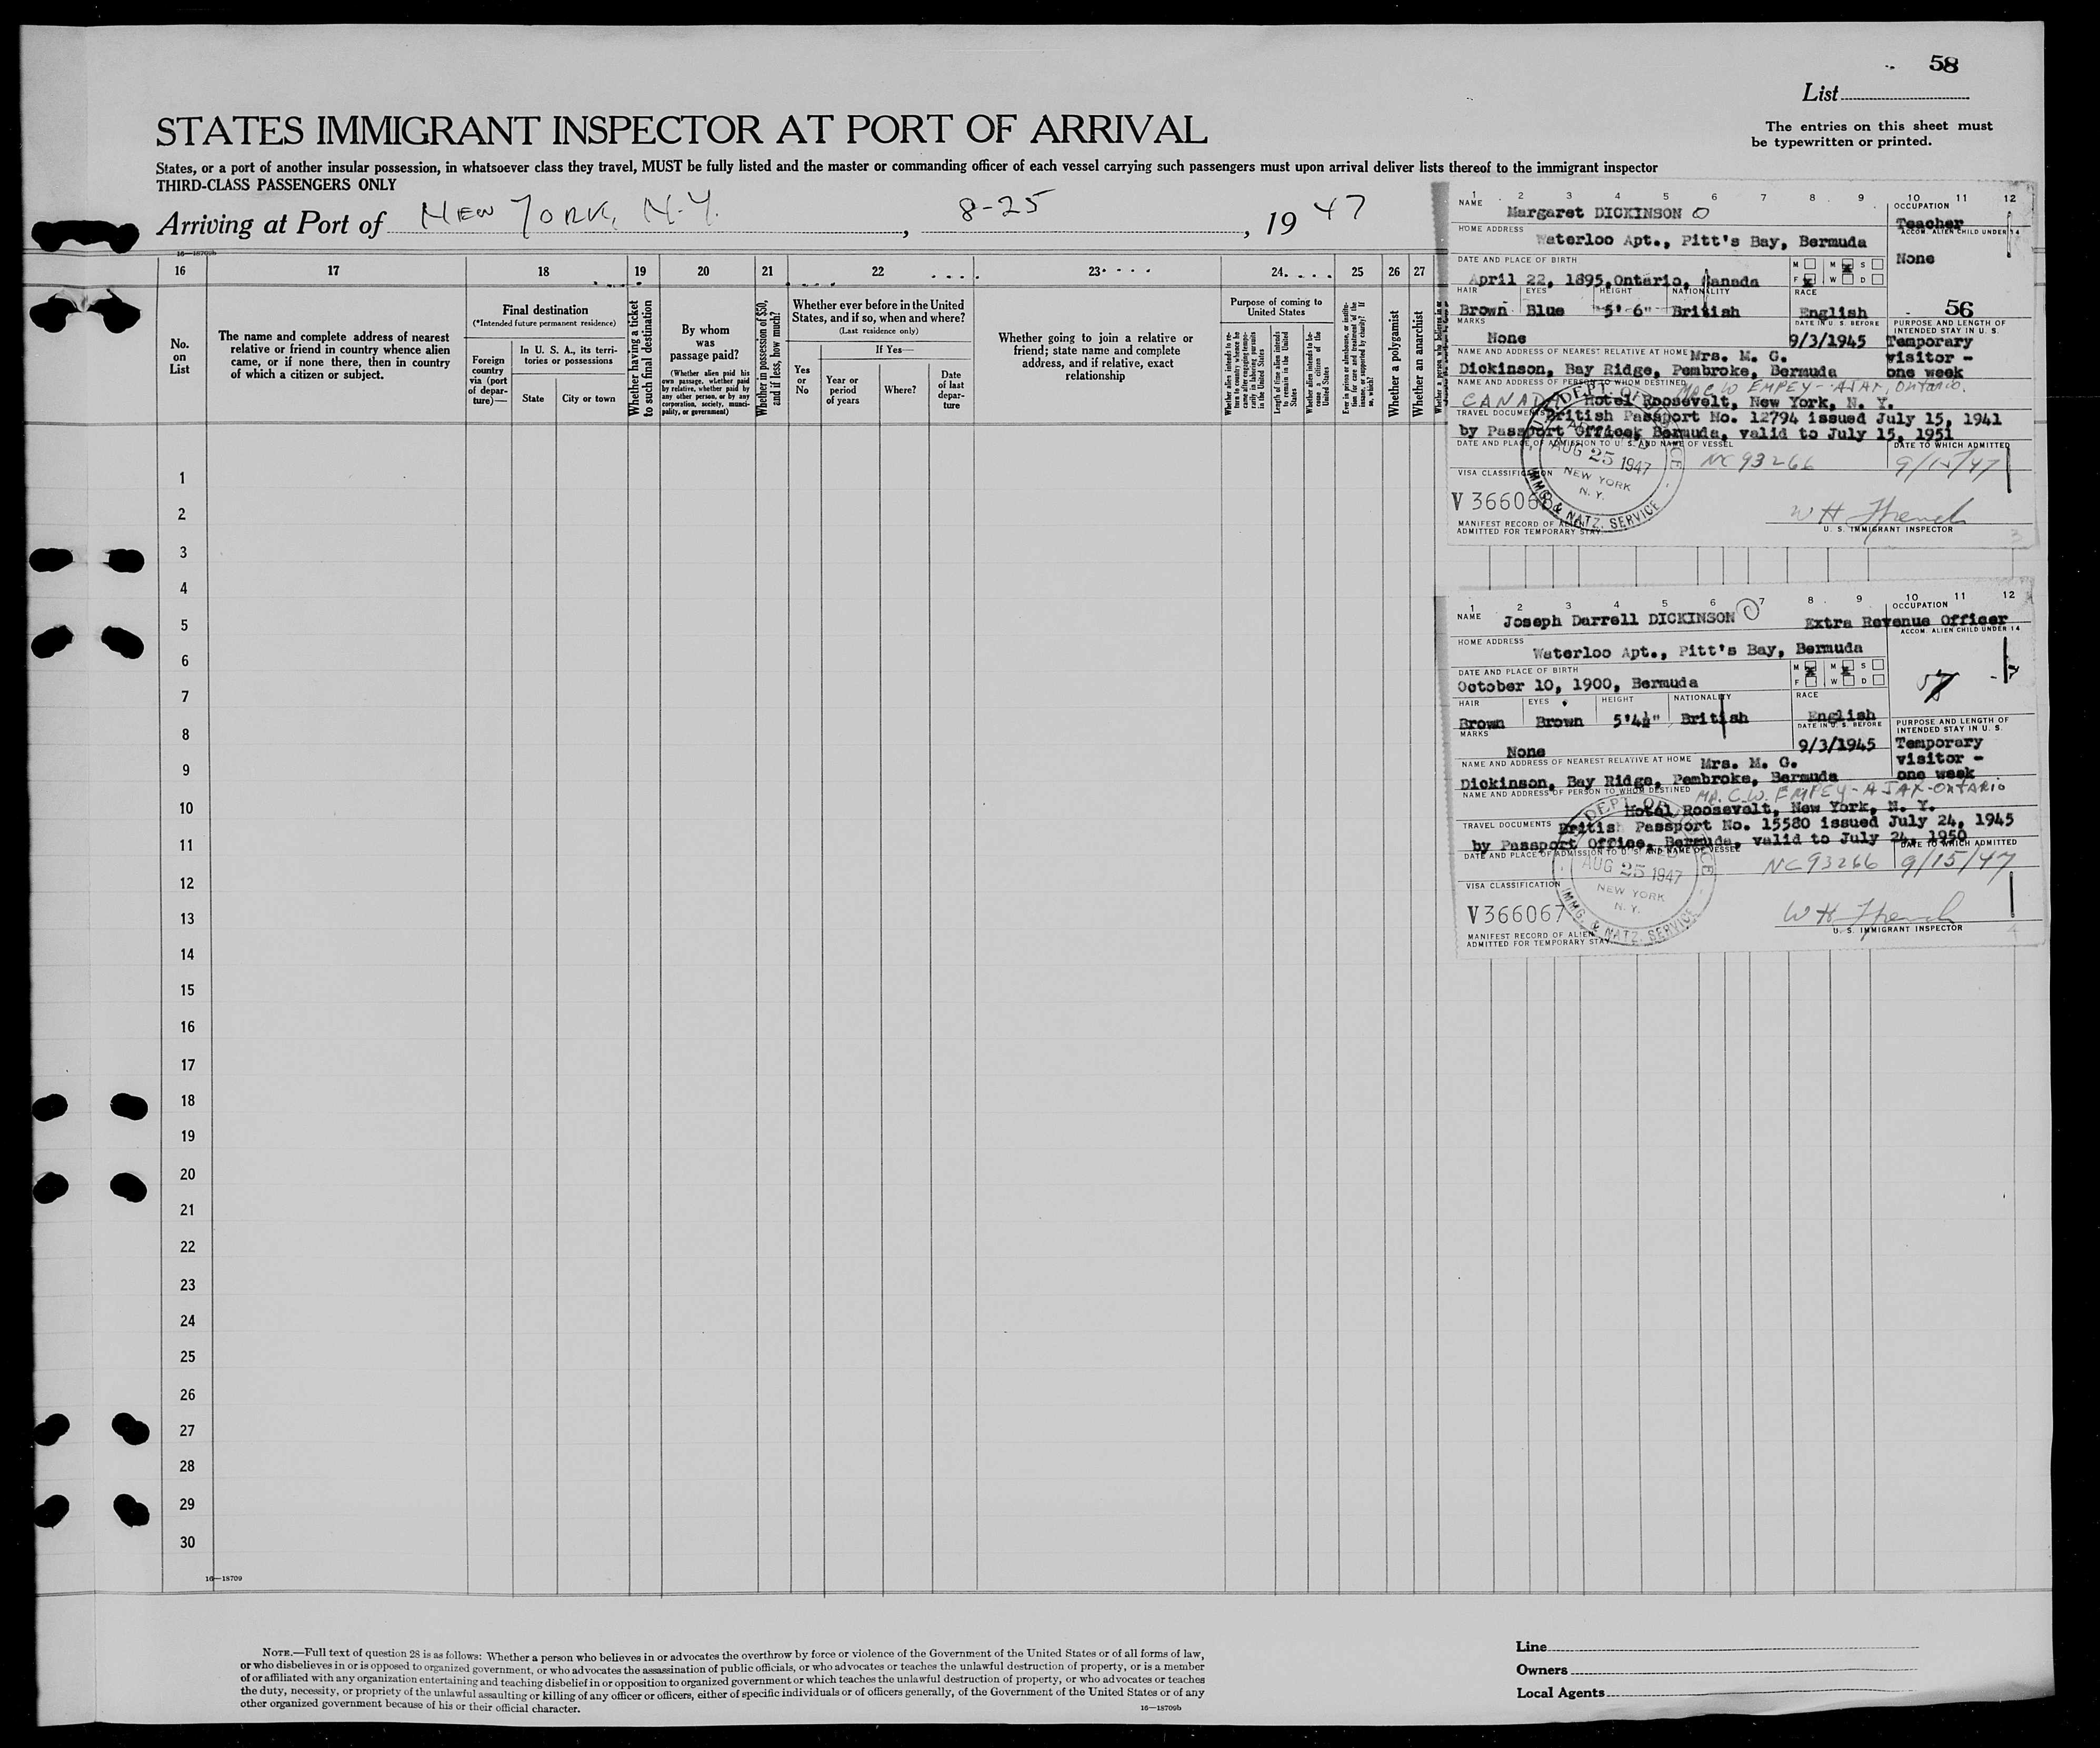 58
List
STATES IMMIGRANT INSPECTOR AT PORT OF ARRIVAL
The entries on this sheet must
be typewritten or printed.
States, or a port of another insular possession, in whatsoever class they travel, MUST be fully listed and the master or commanding officer of each vessel carrying such passengers must upon arrival deliver lists thereof to the immigrant inspector
THIRD-CLASS PASSENGERS ONLY
Arriving at Port of NEW YORK, N.Y., 8-25, 1947
16—18709b
16 17 18 19 20 21 22 23 24 25 26 27
No.
on
List
The name and complete address of nearest
relative or friend in country whence alien
came, or if none there, then in country
of which a citizen or subject.
Final destination
(*Intended future permanent residence)
Foreign
country
via (port
of depar-
ture)—
In U. S. A., its terri-
tories or possessions
State
City or town
Whether having a ticket
to such final destination
By whom
was
passage paid?
(Whether alien paid his
own passage, whether paid
by relative, whether paid by
any other person, or by any
corporation, society, munici-
pality, or government)
Whether in possession of $50,
and if less, how much?
Whether ever before in the United
States, and if so, when and where?
(Last residence only)
Yes
or
No
If Yes—
Year or
period
of years
Where?
Date
of last
depar-
ture
Whether going to join a relative or
friend; state name and complete
address, and if relative, exact
relationship
Purpose of coming to
United States
Whether alien intends to re-
turn to country whence he
came after engaging tempo-
rarily in laboring pursuits
in the United States
Length of time alien intends
to remain in the United
States
Whether alien intends to be-
come a citizen of the
United States
Ever in prison or almshouse, or institu-
tion for care and treatment of the
insane, or supported by charity? If
so, which?
Whether a polygamist
Whether an anarchist
1
2
3
4
5
6
7
8
9
10
11
12
13
14
15
16
17
18
19
20
21
22
23
24
25
26
27
28
29
30
16—18709
1 2 3 4 5 6 7 8 9 10 11 12
NAME
Margaret DICKINSON
OCCUPATION
Teacher
HOME ADDRESS
Waterloo Apt., Pitt's Bay, Bermuda
ACCOM. ALIEN CHILD UNDER 14
None
DATE AND PLACE OF BIRTH
April 22, 1895, Ontario, Canada
M M S
F W D
HAIR EYES HEIGHT NATIONALITY RACE
Brown Blue 5' 6" British English
56
MARKS
None
DATE IN U. S. BEFORE
9/3/1945
PURPOSE AND LENGTH OF
INTENDED STAY IN U. S.
Temporary
visitor -
one week
NAME AND ADDRESS OF NEAREST RELATIVE AT HOME Mrs. M. G.
Dickinson, Bay Ridge, Pembroke, Bermuda
NAME AND ADDRESS OF PERSON TO WHOM DESTINED C W EMPEY - AJAX, ONTARIO.
CANADA Hotel Roosevelt, New York, N. Y.
TRAVEL DOCUMENTS British Passport No. 12794 issued July 15, 1941
by Passport Officer Bermuda, valid to July 15, 1951
DATE AND PLACE OF ADMISSION TO U. S. AND NAME OF VESSEL
NC 93266
DATE TO WHICH ADMITTED
9/15/47
AUG 25 1947
NEW YORK
N. Y.
IMMG. & NATZ. SERVICE
VISA CLASSIFICATION
V 366068
W H French
U. S. IMMIGRANT INSPECTOR
MANIFEST RECORD OF ALIEN
ADMITTED FOR TEMPORARY STAY
3
1 2 3 4 5 6 7 8 9 10 11 12
NAME
Joseph Darrell DICKINSON
OCCUPATION
Extra Revenue Officer
HOME ADDRESS
Waterloo Apt., Pitt's Bay, Bermuda
ACCOM. ALIEN CHILD UNDER 14
DATE AND PLACE OF BIRTH
October 10, 1900, Bermuda
M M S
F W D
57
HAIR EYES HEIGHT NATIONALITY RACE
Brown Brown 5'4½" British English
MARKS
None
DATE IN U. S. BEFORE
9/3/1945
PURPOSE AND LENGTH OF
INTENDED STAY IN U. S.
Temporary
visitor -
one week
NAME AND ADDRESS OF NEAREST RELATIVE AT HOME Mrs. M. G.
Dickinson, Bay Ridge, Pembroke, Bermuda
NAME AND ADDRESS OF PERSON TO WHOM DESTINED MR. C.W. EMPEY - AJAX - ONTARIO
Hotel Roosevelt, New York, N. Y.
TRAVEL DOCUMENTS British Passport No. 15580 issued July 24, 1945
by Passport Office, Bermuda, valid to July 24, 1950
DATE AND PLACE OF ADMISSION TO U. S. AND NAME OF VESSEL
NC 93266
DATE TO WHICH ADMITTED
9/15/47
AUG 25 1947
NEW YORK
N. Y.
IMMG. & NATZ. SERVICE
VISA CLASSIFICATION
V366067
W H French
U. S. IMMIGRANT INSPECTOR
MANIFEST RECORD OF ALIEN
ADMITTED FOR TEMPORARY STAY
NOTE.—Full text of question 28 is as follows: Whether a person who believes in or advocates the overthrow by force or violence of the Government of the United States or of all forms of law,
or who disbelieves in or is opposed to organized government, or who advocates the assassination of public officials, or who advocates or teaches the unlawful destruction of property, or is a member
of or affiliated with any organization entertaining and teaching disbelief in or opposition to organized government or which teaches the unlawful destruction of property, or who advocates or teaches
the duty, necessity, or propriety of the unlawful assaulting or killing of any officer or officers, either of specific individuals or of officers generally, of the Government of the United States or of any
other organized government because of his or their official character.
16—18709b
Line
Owners
Local Agents